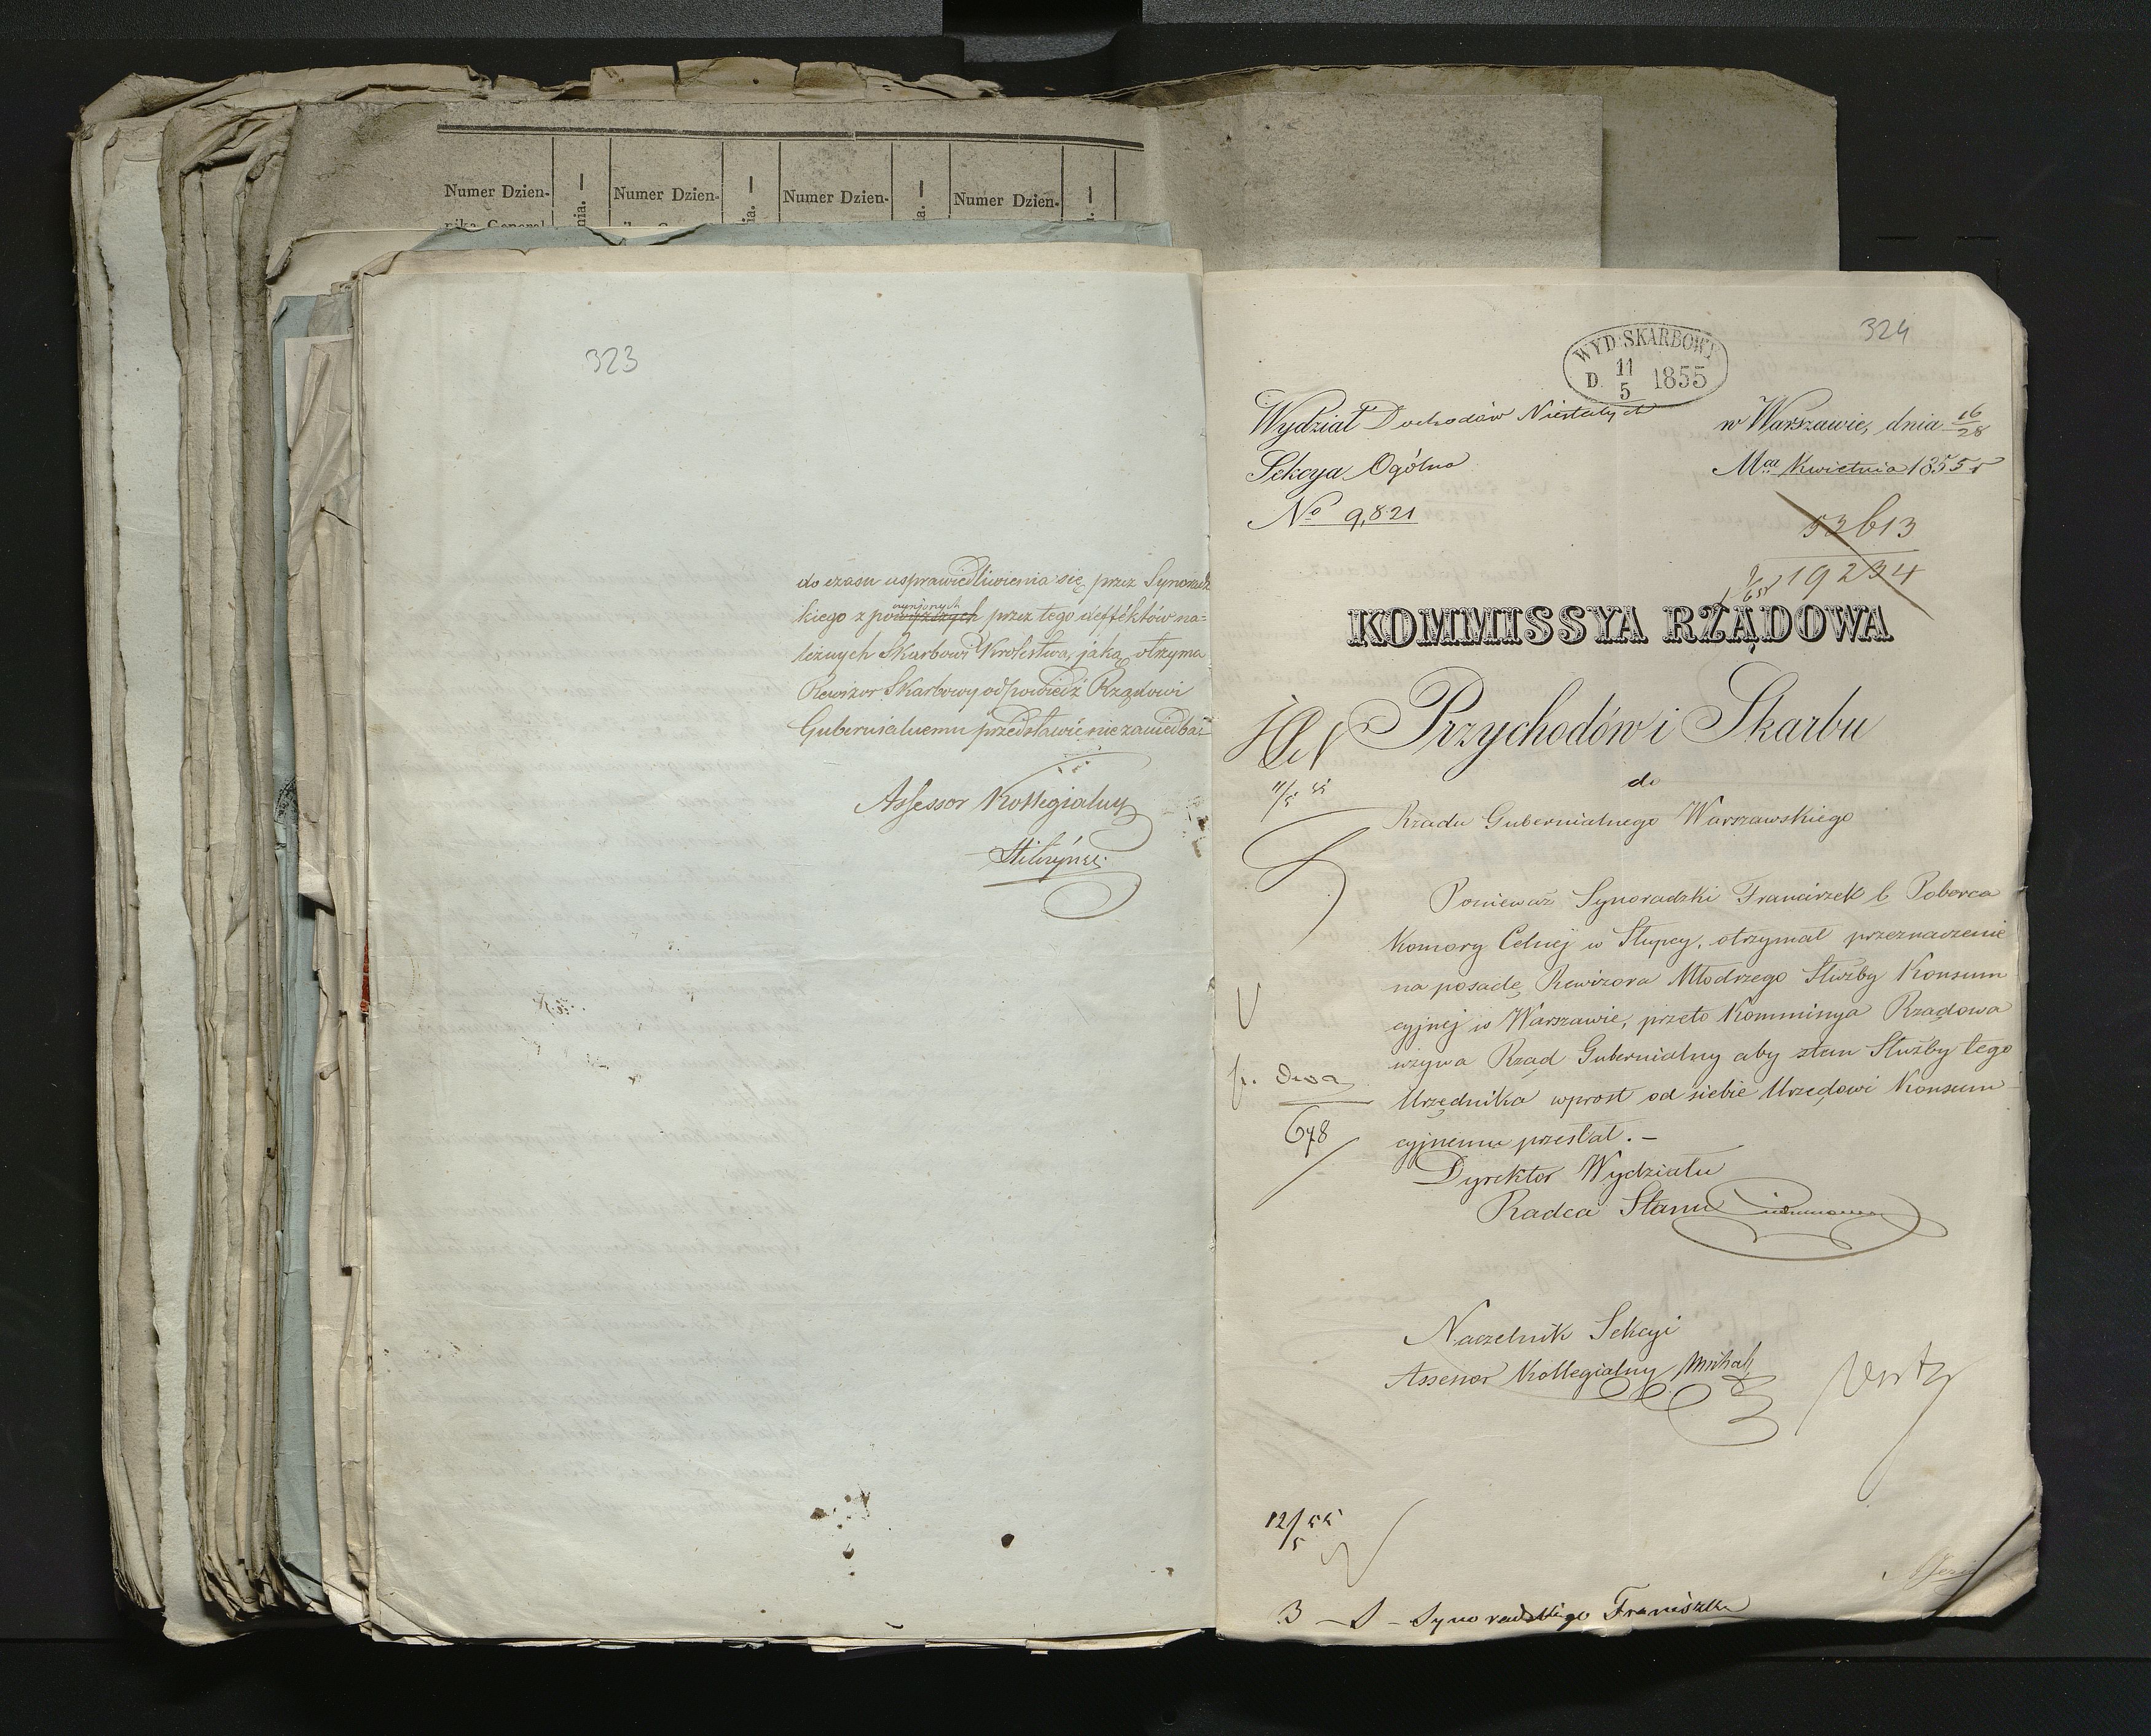 Numer Dzien- nia. Numer Dzien- ia. Numer Dzien- a. Numer Dzien-
nika General
323
do czasu usprawiedliwienia się przez Synoradz
kiego z powyższych przez tego deffektów na=
leżnych Skarbowi Królestwa, jaką otrzyma
Rewizor Skarbowy odpowiedź Rządowi
Gubernialnemu przedstawić nie zaniedba.=
Assessor Kollegialny
324
WYD. SKARBOWY
D. 11/5 1855
Wydział Dochodów Niestałych
w Warszawie, dnia 16/28
Sekcya Ogólna
Mca Kwietnia 1855 r
No 9,821
53613
19234
KOMMISSYA RZĄDOWA
Przychodów i Skarbu
11/5 55
do
Rządu Gubernialnego Warszawskiego
Ponieważ Synoradzki Franciszek b. Poborca
Komory Celnéj w Słupcy, otrzymał przeznaczenie
na posadę Rewizora Młodszego Służby Konsum
cyjnéj w Warszawie, przeto Kommissya Rządowa
wzywa Rząd Gubernialny aby stan Służby tego
Urzędnika wprost od siebie Urzędowi Konsum
cyjnemu przesłał. –
dwa
678
Dyrektor Wydziału
Radca Stanu
Naczelnik Sekcyi
Assessor Kollegialny
12/5 55
B – S – Synoradzkiego Franciszka